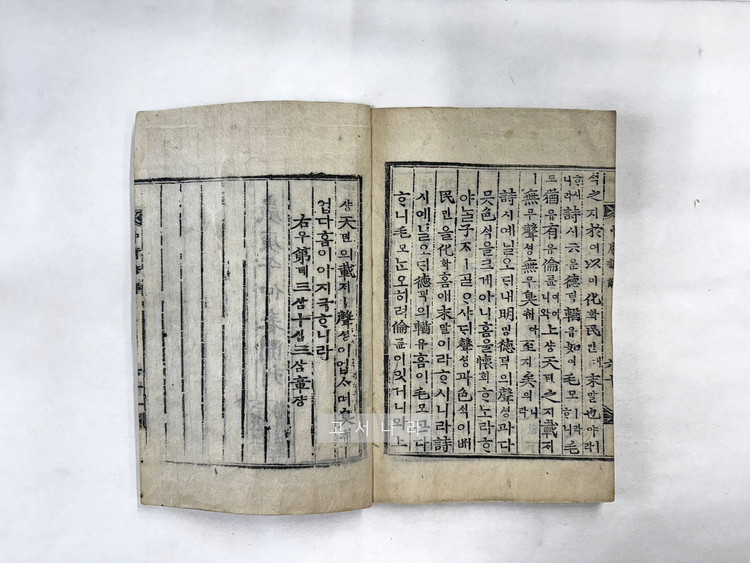 석之지於어以이化화民민애末말也야ㅣ라
ᄒᆞ시니라詩시云운德덕輶유如여毛모ㅣ라ᄒᆞ나毛모
도猶유有유倫륜ᄒᆞ니와上샹天텬之지載ᄌᆡ
ㅣ無무聲셩無무臭ㅣ라아至지矣의니라
詩시예닐오ᄃᆡ내明명德덕의聲셩과다
ᄆᆺ色ᄉᆡᆨ을크게아니홈을懷회ᄒᆞ노라ᄒᆞ
야ᄂᆞᆯ子ᄌᆞㅣᄀᆞᆯᄋᆞ샤ᄃᆡ聲셩과色ᄉᆡᆨ이배
民민을化화홈애末말이라ᄒᆞ시니라詩
시예닐오ᄃᆡ德덕의輶유홈이毛모ᄀᆞᆮ다
ᄒᆞ니毛모ᄂᆞᆫ오히려倫륜이잇거니와上
샹天텬의載ᄌᆡㅣ聲셩이업ᄉᆞ며臭
업다홈이아지극ᄒᆞ니라
右우第뎨三삼十십三삼章쟝
고서나라